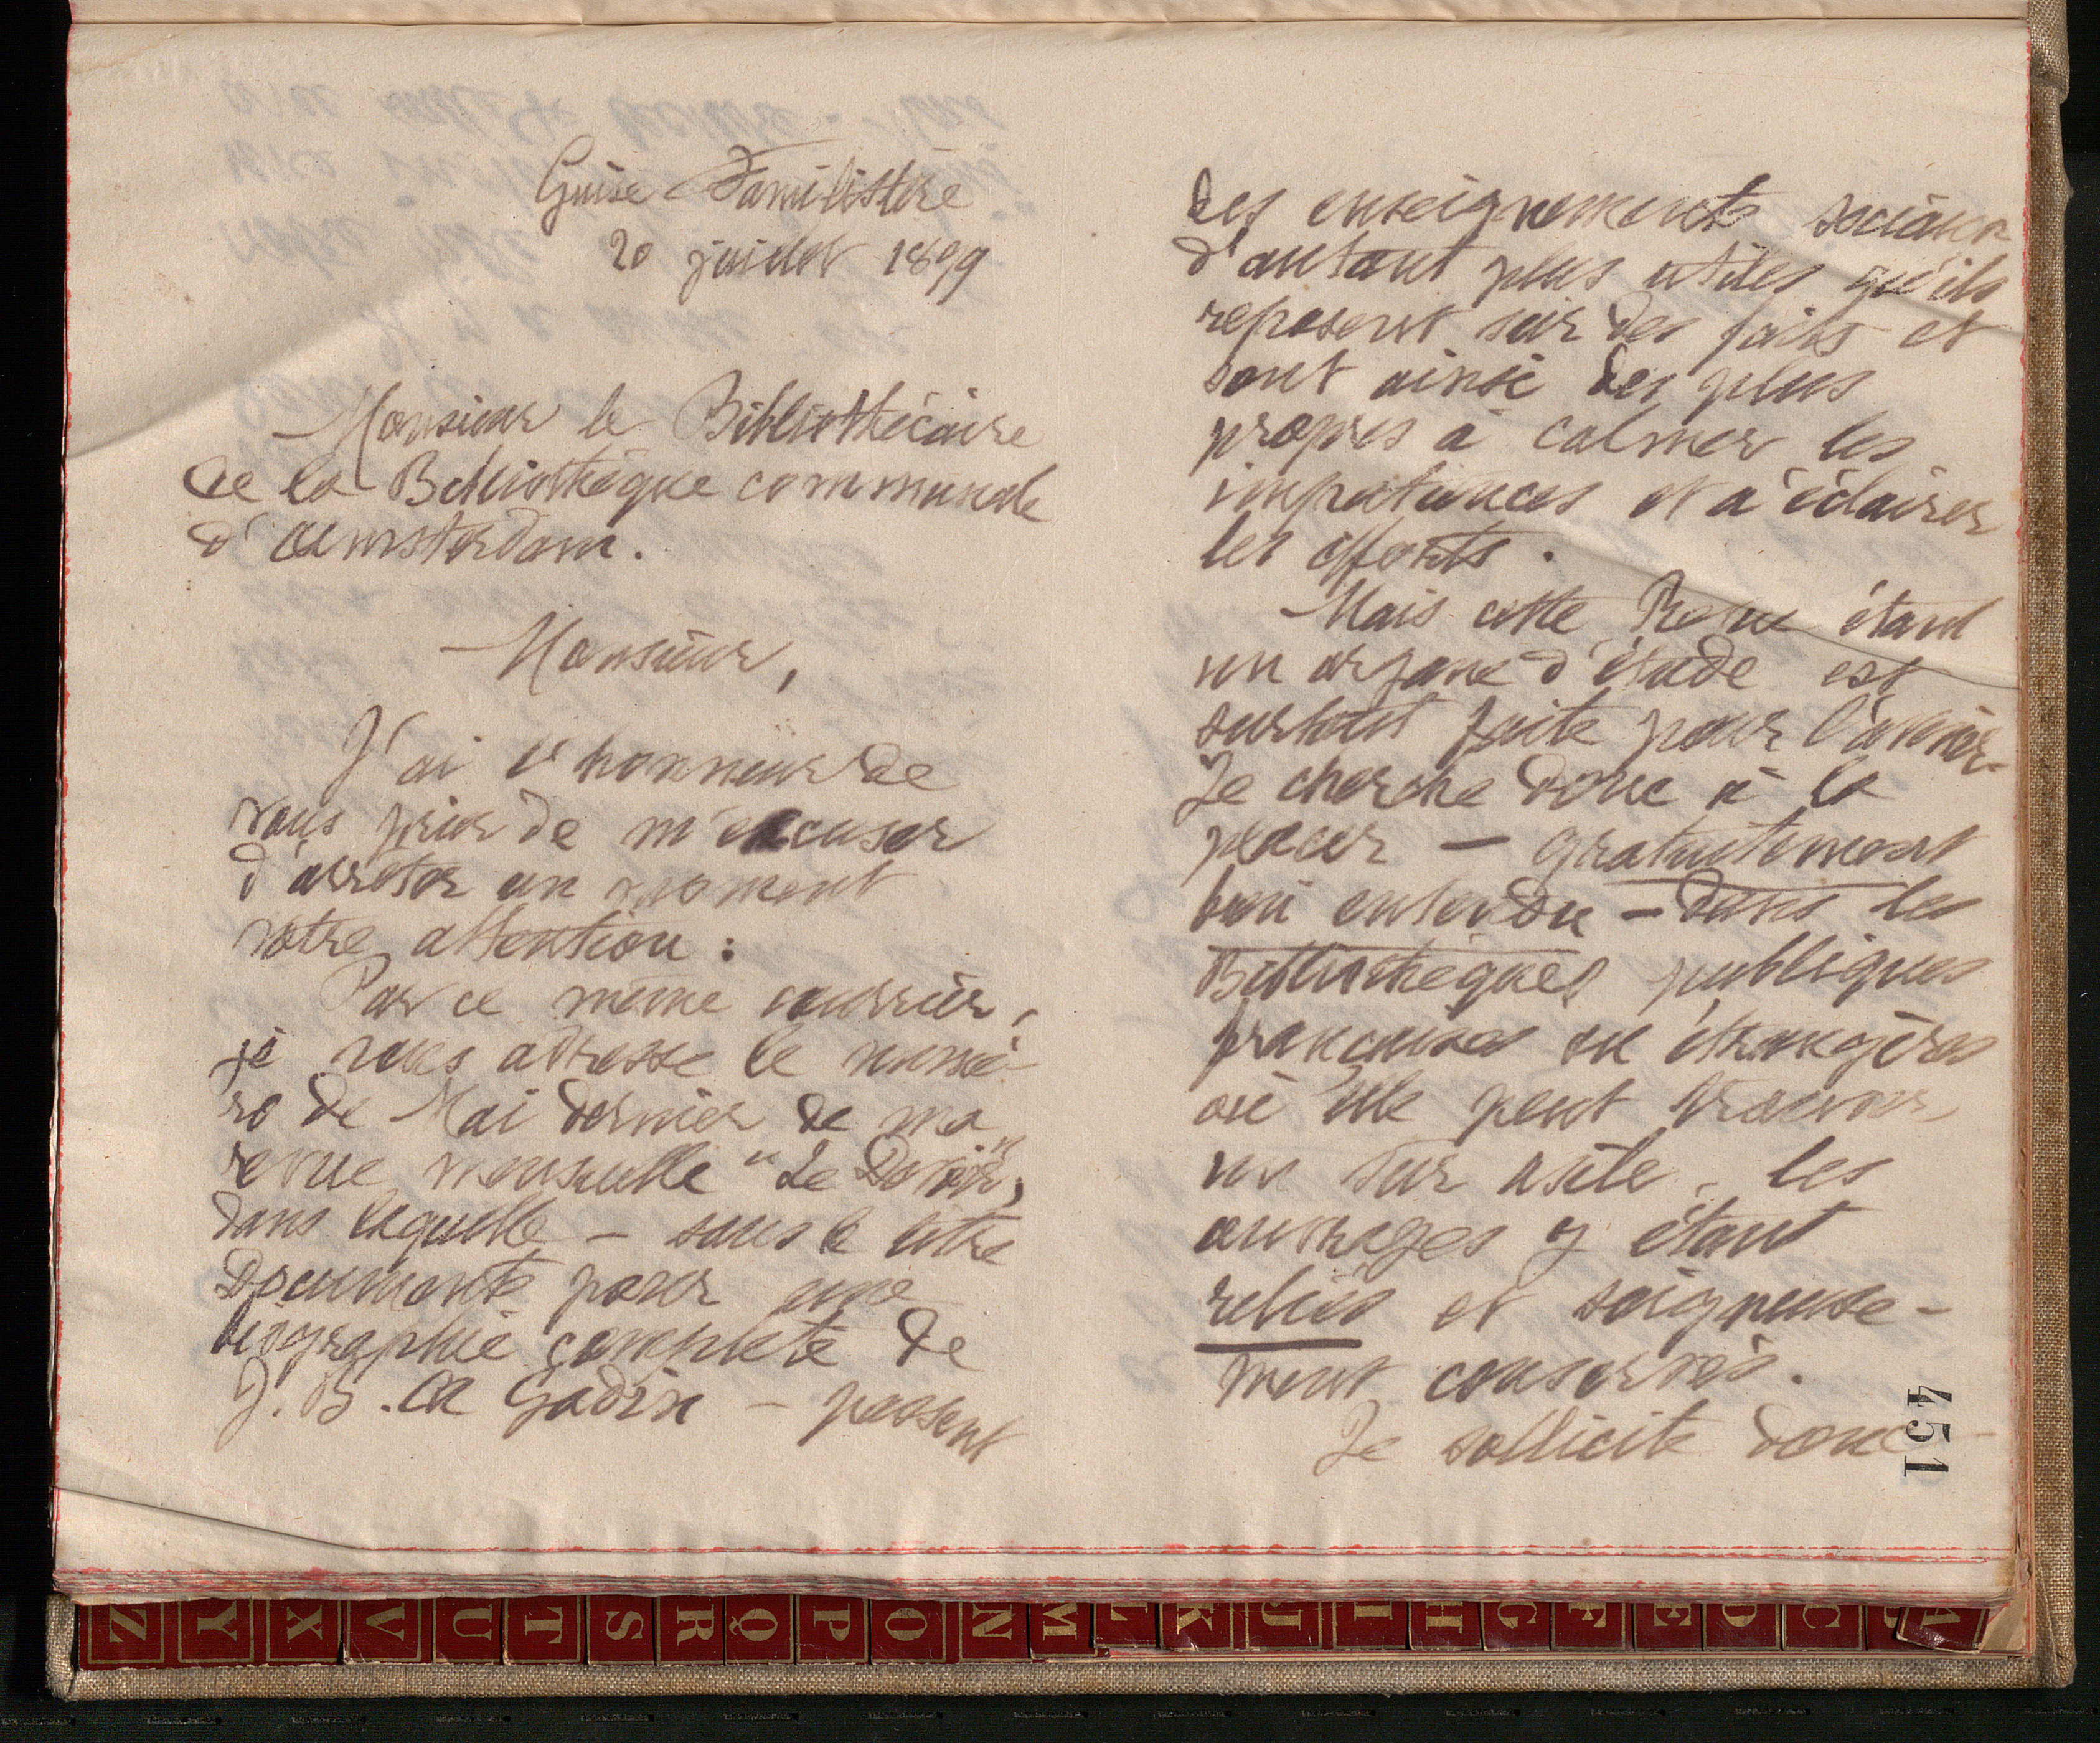 Guise Familistère
20 juillet 1899
Monsieur le Bibliothécaire
de la Bibliothèque communale
d'Amsterdam.
Monsieur,
J'ai l'honneur de
vous prier de m'excuser
d'arrêter un moment
votre attention :
Par ce même courrier,
je vous adresse le numé-
ro de Mai dernier de ma
revue mensuelle "Le Devoir",
dans laquelle – sous le titre
Documents pour une
biographie complète de
J. B. A. Godin – passent
des enseignements sociaux
d'autant plus utiles qu'ils
reposent sur des faits et
sont ainsi des plus
propres à calmer les
impatiences et à éclairer
les efforts.
Mais cette Revue étant
un organe d'étude est
surtout faite pour l'avenir.
Je cherche donc à la
placer – gratuitement
bien entendu – dans les
Bibliothèques publiques
françaises ou étrangères
où elle peut trouver
un sûr asile, les
ouvrages y étant
reliés et soigneuse-
ment conservés.
Je sollicite donc
451
Z Y X V U T S R Q P O N M L K J I H G F E D C B A